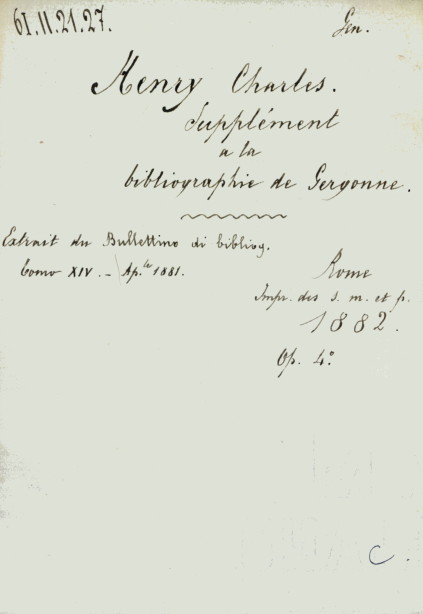 61.11.21.27.
Gen.
Henry Charles.
Supplément
a la
bibliographie de Gergonne.
Extrait du Bullettino di bibliog.
tomo XIV. - Ap.le 1881.
Rome
Impr. des s. m. et p.
1882.
Op. 4°.
C.